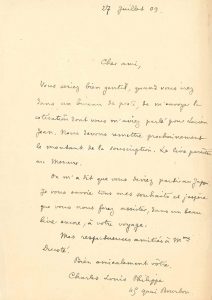 27 Juillet 09
Cher ami,
Vous seriez bien gentil, quand vous irez
dans un bureau de poste, de m'envoyer la
cotisation dont vous m'aviez parlé pour Lucien
Jean. Nous devons remettre prochainement
le montant de la souscription. Le livre paraîtra
au Mercure.
On m'a dit que vous deviez partir au Japon
Je vous envoie tous mes souhaits et j'espère
que vous nous ferez assister, dans un beau
livre encore, à votre voyage.
Mes respectueuses amitiés à Mme
Ducoté.
Bien amicalement vôtre.
Charles Louis Philippe
45 quai Bourbon